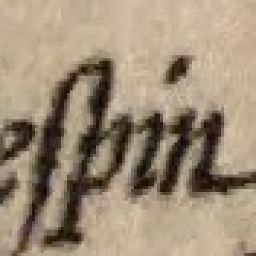 eſpin